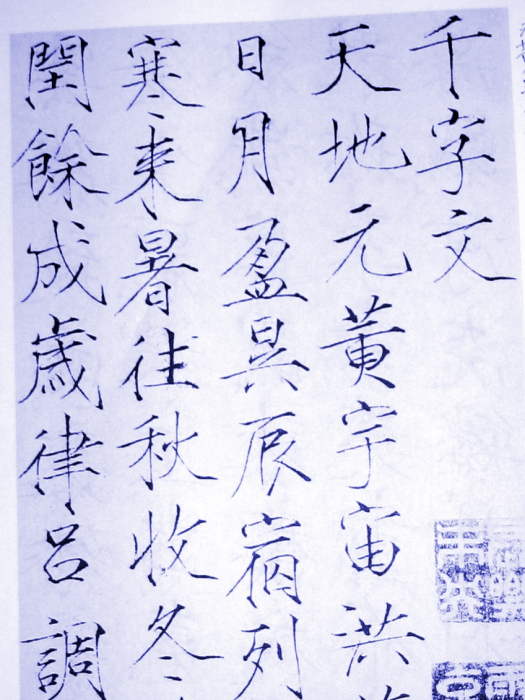 千字文
天地元黄宇宙洪
日月盈昃辰宿列
寒来暑往秋收冬
閏餘成歳律呂調